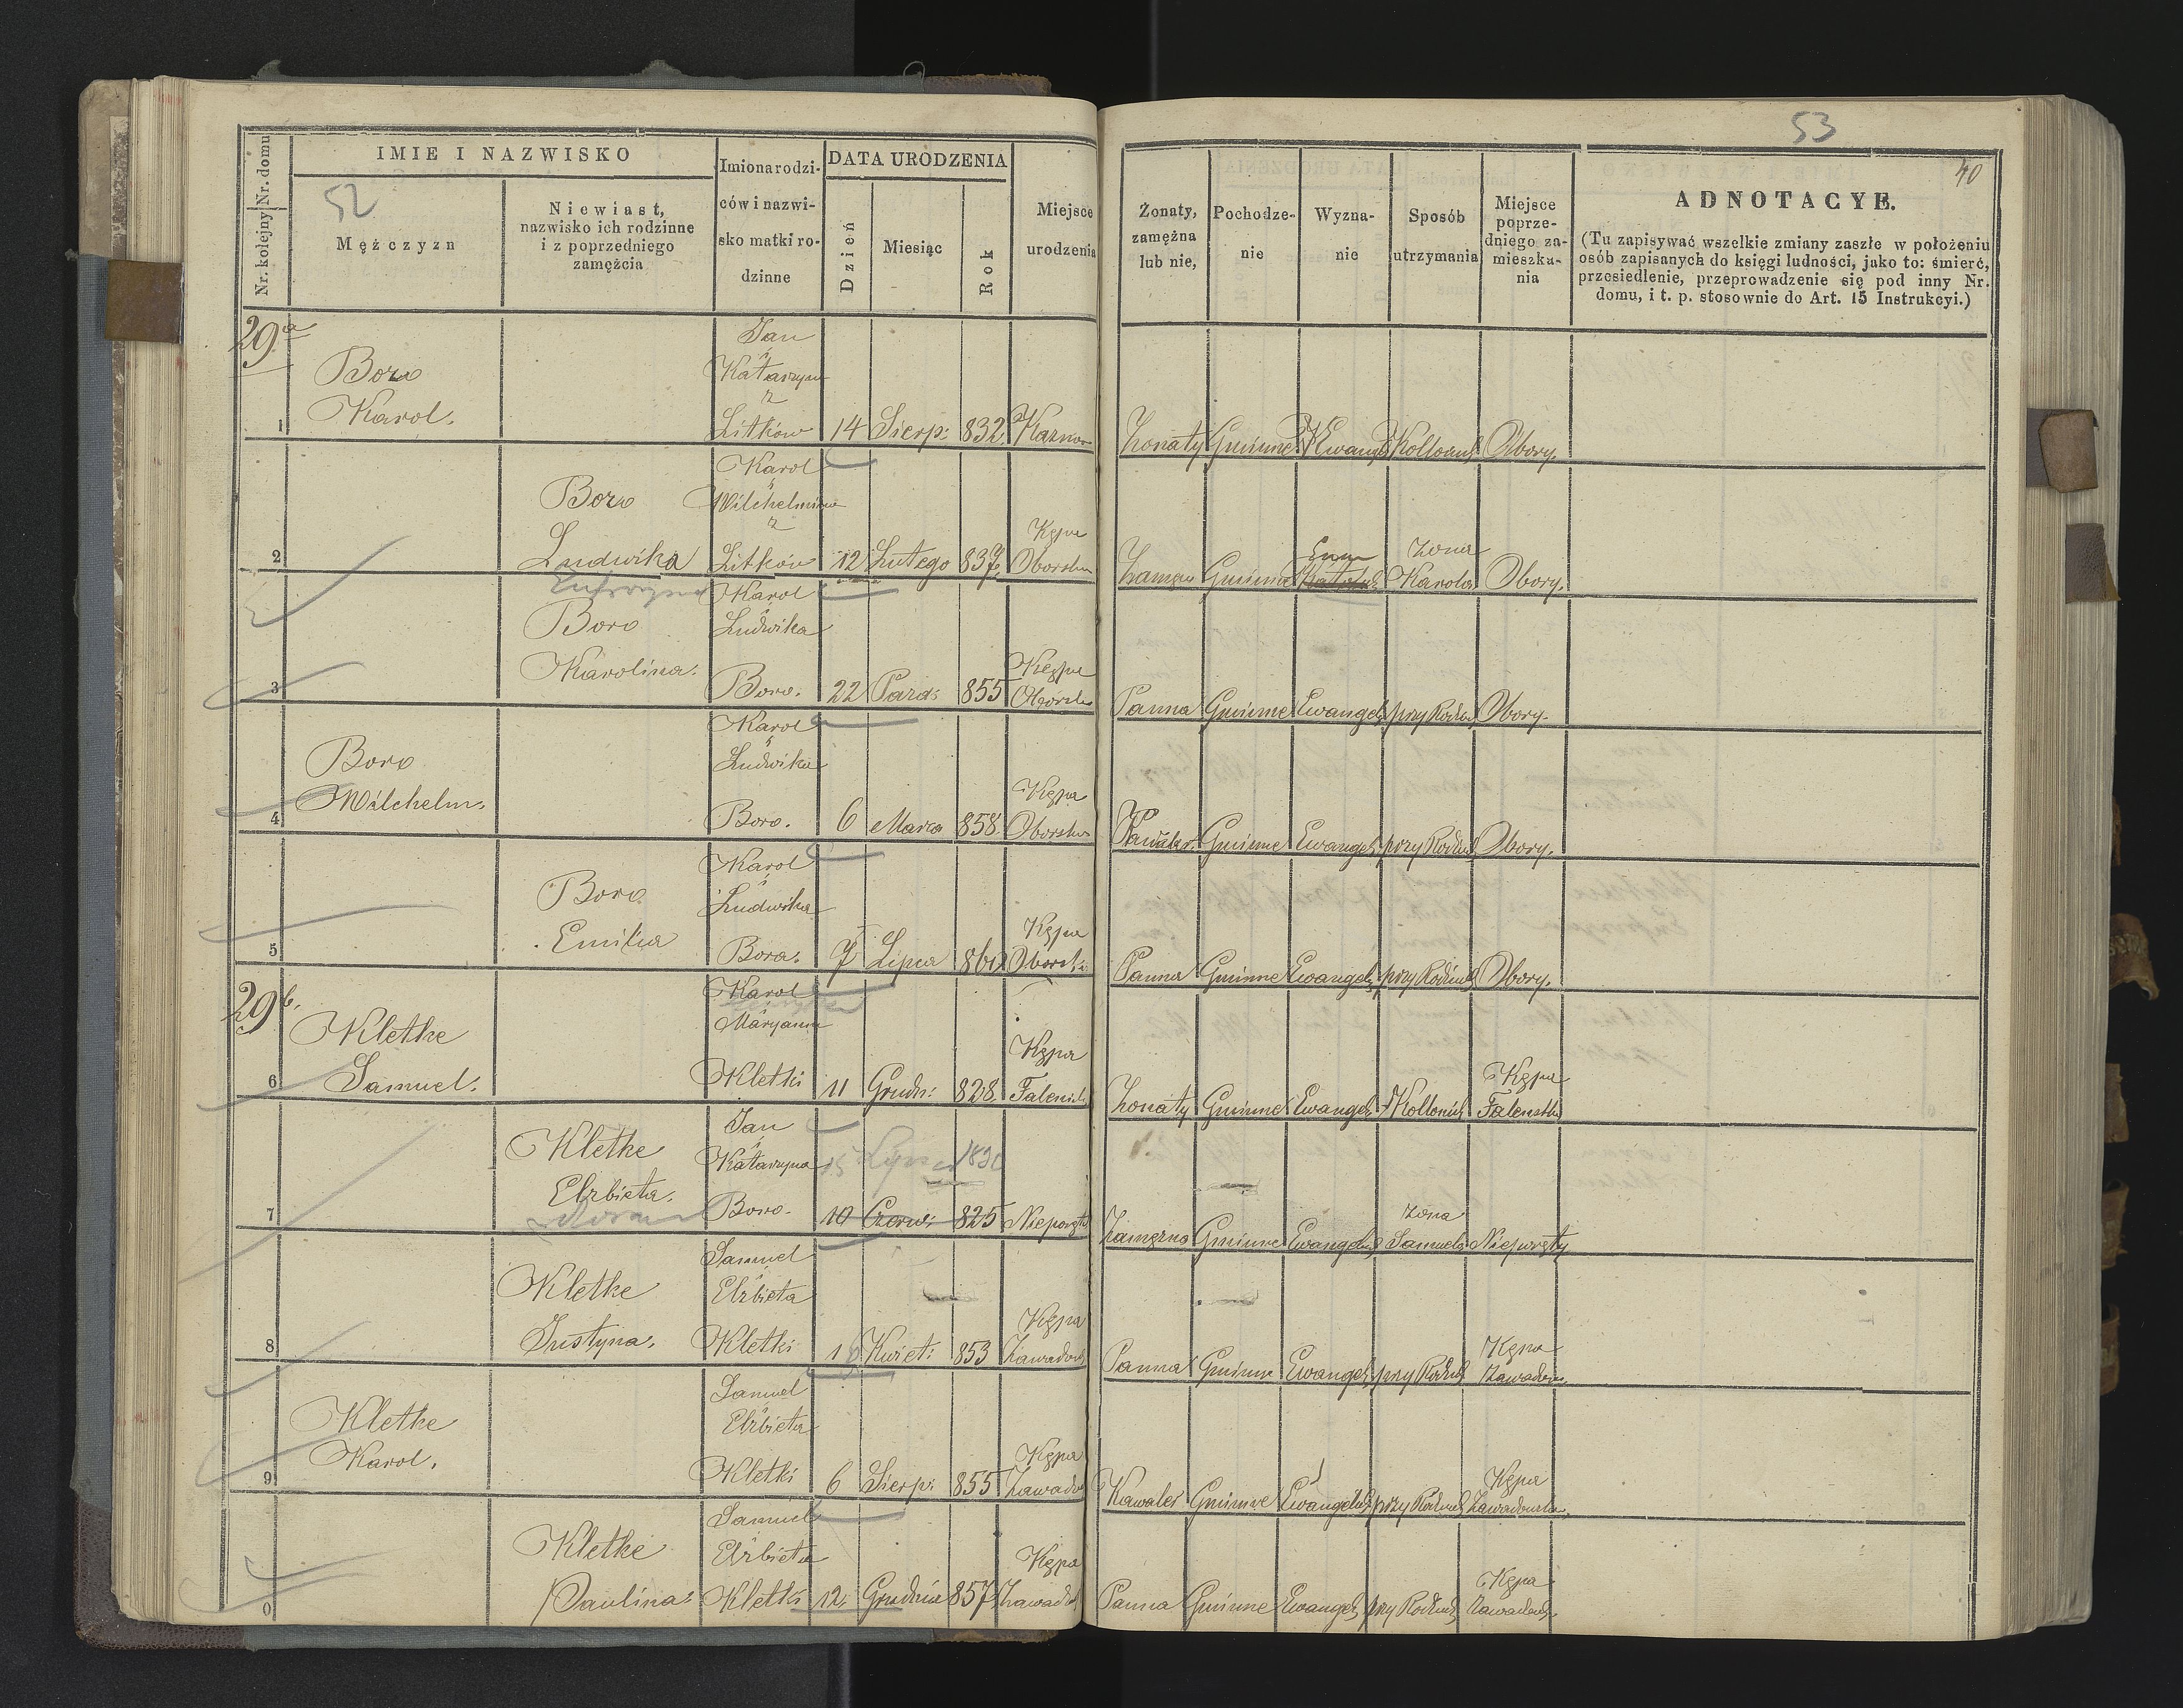 52
53
40
Nr. kolejny Nr. domu
IMIE I NAZWISKO
Mężczyzn
Niewiast,
nazwisko ich rodzinne
i z poprzedniego
zamężcia
Imiona rodzi-
ców i nazwi-
sko matki ro-
dzinne
DATA URODZENIA
Dzień
Miesiąc
Rok
Miejsce
urodzenia
Żonaty,
zamężna
lub nie,
Pochodze-
nie
Wyzna-
nie
Sposób
utrzymania
Miejsce
poprze-
dniego za-
mieszka-
nia
ADNOTACYE.
(Tu zapisywać wszelkie zmiany zaszłe w położeniu
osób zapisanych do księgi ludności, jako to: śmierć,
przesiedlenie, przeprowadzenie się pod inny Nr.
domu, i t. p. stosownie do Art. 15 Instrukcyi.)
29a
Jan
Katarzyna
Boro
z
Karol.
1 Litków 14 Sierp: 832 Żonaty Gminne Ewang Obory.
Karol
Boro
Wilchelmina
z
Kępa
Żona
2 Ludwika Litków 12 Lutego 837 Oborska Gminne Karola Obory.
Karol
Boro
Ludwika
Karolina.
Kępa
3 Boro. 22 Pazd: 855 Oborska Panna Gminne Ewangel przy Rodzic Obory.
Karol
Boro
Ludwika
Wilchelm.
Kępa
4 Boro. 6 Marca 858 Oborska Kawaler. Gminne Ewangel przy Rodzic Obory.
Karol
Boro
Ludwika
Emilia
Kępa
5 Boro. 7 Lipca 860 Oborska Panna Gminne Ewangel przy Rodzic Obory.
29b.
Karol
Maryanna
Kletke
Kępa
Kępa
6 Samuel. Kletki 11 Grudn: 828 Falensk Żonaty Gminne Ewangel Kollonis Falenska
Jan
Kletke
Katarzyna 15 Lipca 1830
Elzbieta.
Żona
7 Boro. 10 Czerw: 825 Zamężna Gminne Ewangel Samuela Nieporęty
Samuel
Kletke
Elzbieta
Kępa
Kępa
8 Justyna. Kletki 1 Kwiet: 853 Zawadow Panna Gminne Ewangel przy Rodzic Zawadow
Samuel
Kletke
Elzbieta
Karol.
Kępa
Kępa
9 Kletki 6 Sierp: 855 Zawadow Kawaler Gminne Ewangel przy Rodzic Zawadowska
Samuel
Kletke
Elzbieta
Kępa
Kępa
0 Paulina. Kletki 12 Grudnia 857 Zawadow Panna Gminne Ewangel przy Rodzic Zawadow